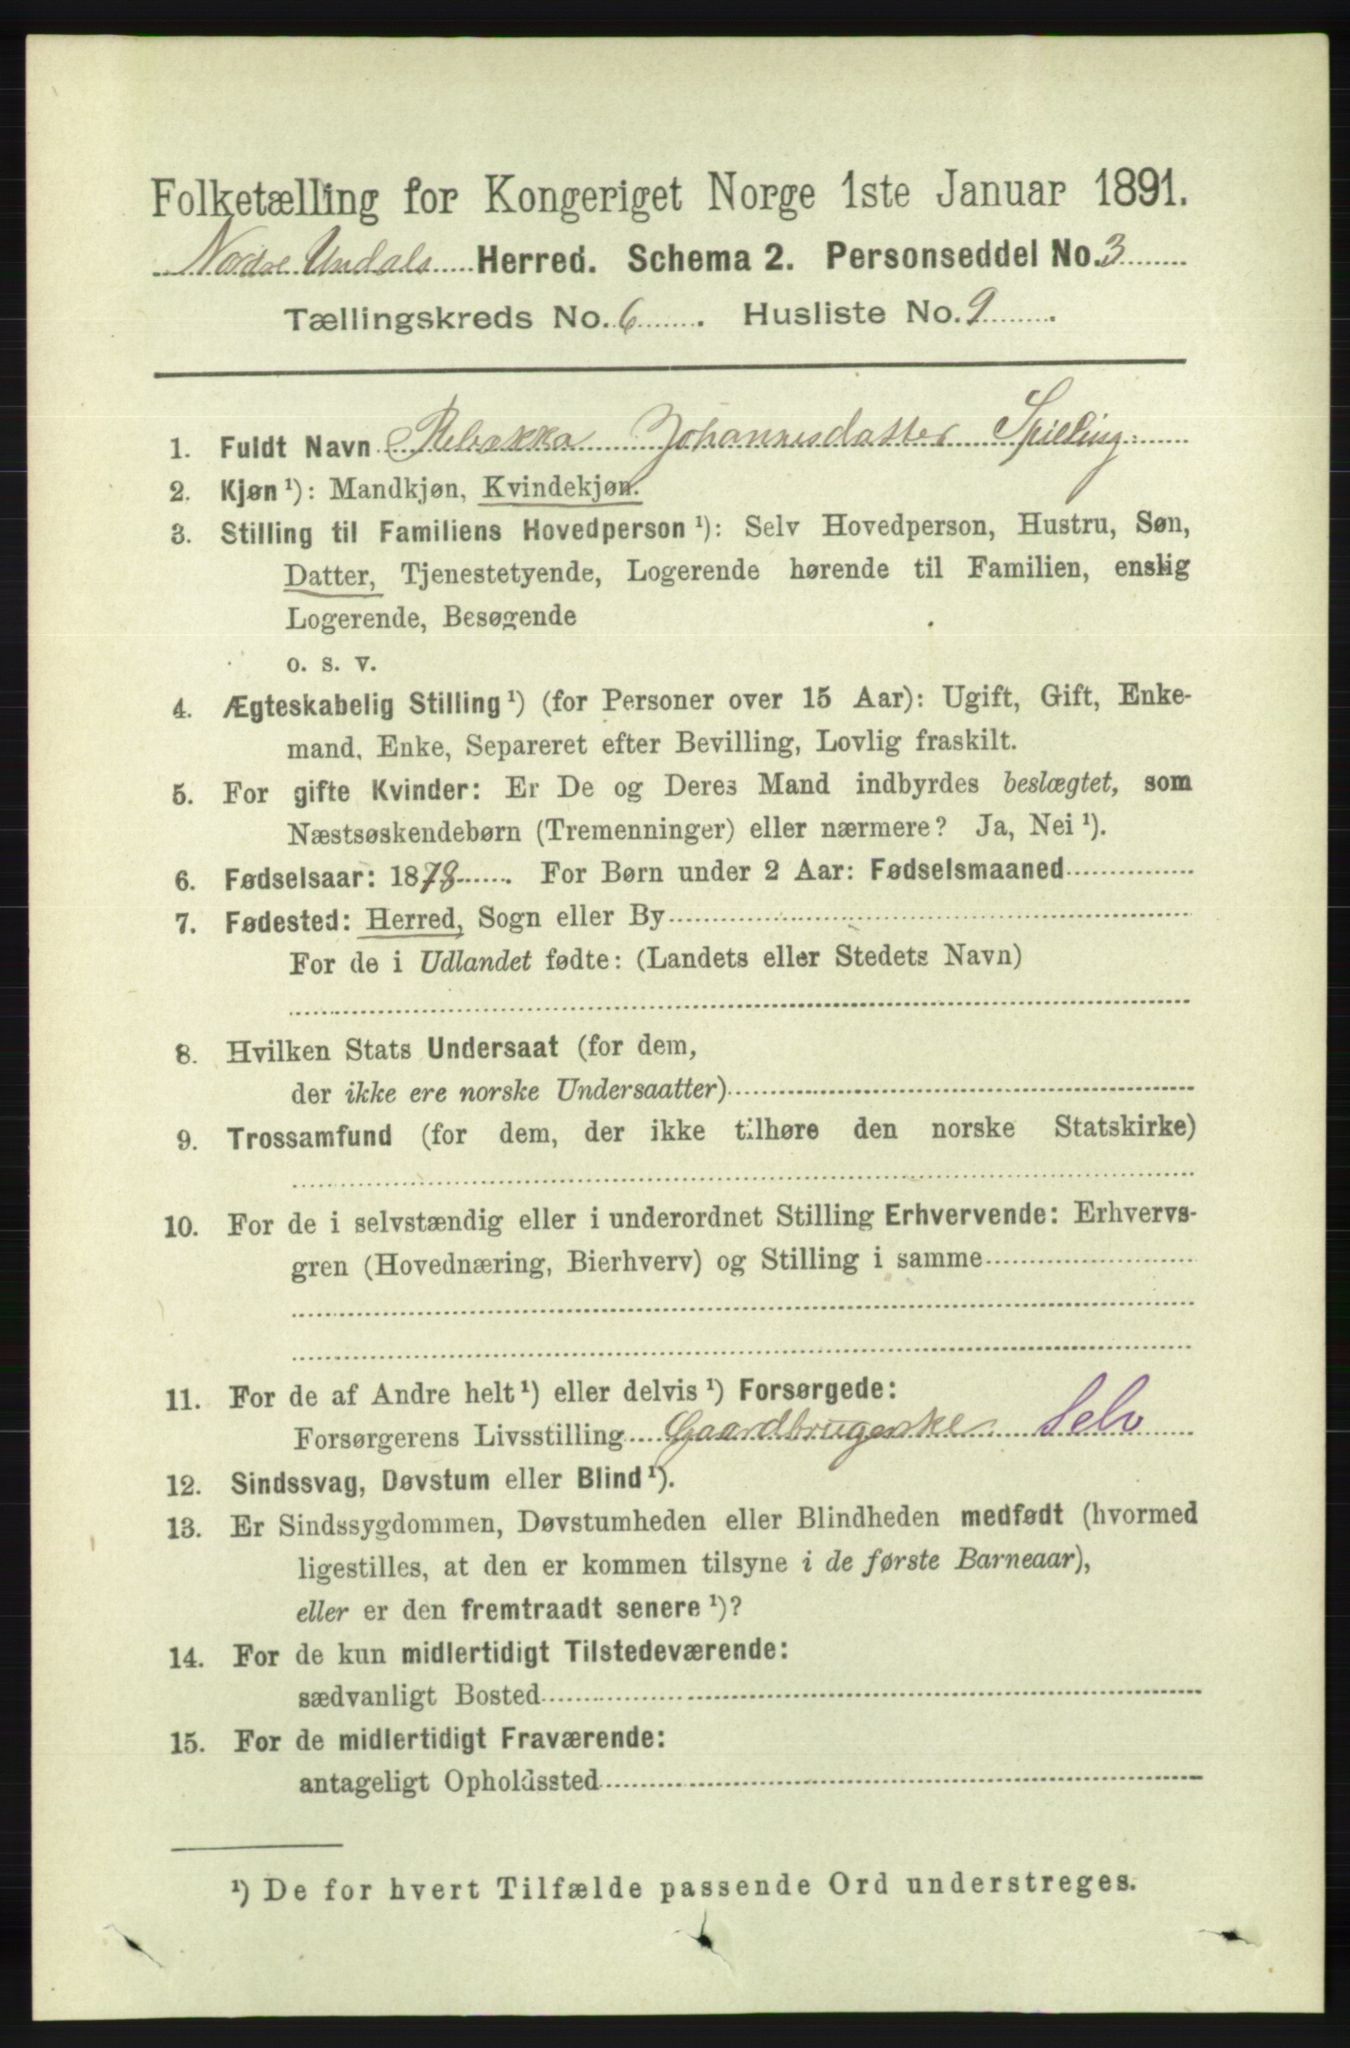 Folketælling for Kongeriget Norge 1ste Januar 1891.
Nordre Undals Herred. Schema 2. Personseddel No. 3
Tællingskreds No. 6. Husliste No. 9.
1. Fuldt Navn Rebekka Johannesdatter Spilling
2. Kjøn ¹): Mandkjøn, Kvindekjøn.
3. Stilling til Familiens Hovedperson ¹): Selv Hovedperson, Hustru, Søn,
Datter, Tjenestetyende, Logerende hørende til Familien, enslig
Logerende, Besøgende
o. s. v.
4. Ægteskabelig Stilling ¹) (for Personer over 15 Aar): Ugift, Gift, Enke-
mand, Enke, Separeret efter Bevilling, Lovlig fraskilt.
5. For gifte Kvinder: Er De og Deres Mand indbyrdes beslægtet, som
Næstsøskendebørn (Tremenninger) eller nærmere? Ja, Nei ¹).
6. Fødselsaar: 1878. For Børn under 2 Aar: Fødselsmaaned
7. Fødested: Herred, Sogn eller By
For de i Udlandet fødte: (Landets eller Stedets Navn)
8. Hvilken Stats Undersaat (for dem,
der ikke ere norske Undersaatter)
9. Trossamfund (for dem, der ikke tilhøre den norske Statskirke)
10. For de i selvstændig eller i underordnet Stilling Erhvervende: Erhvervs-
gren (Hovednæring, Bierhverv) og Stilling i samme
11. For de af Andre helt ¹) eller delvis ¹) Forsørgede:
Forsørgerens Livsstilling Gaardbrugerske Selv
12. Sindssvag, Døvstum eller Blind ¹).
13. Er Sindssygdommen, Døvstumheden eller Blindheden medfødt (hvormed
ligestilles, at den er kommen tilsyne i de første Barneaar),
eller er den fremtraadt senere ¹)?
14. For de kun midlertidigt Tilstedeværende:
sædvanligt Bosted
15. For de midlertidigt Fraværende:
antageligt Opholdssted
¹) De for hvert Tilfælde passende Ord understreges.